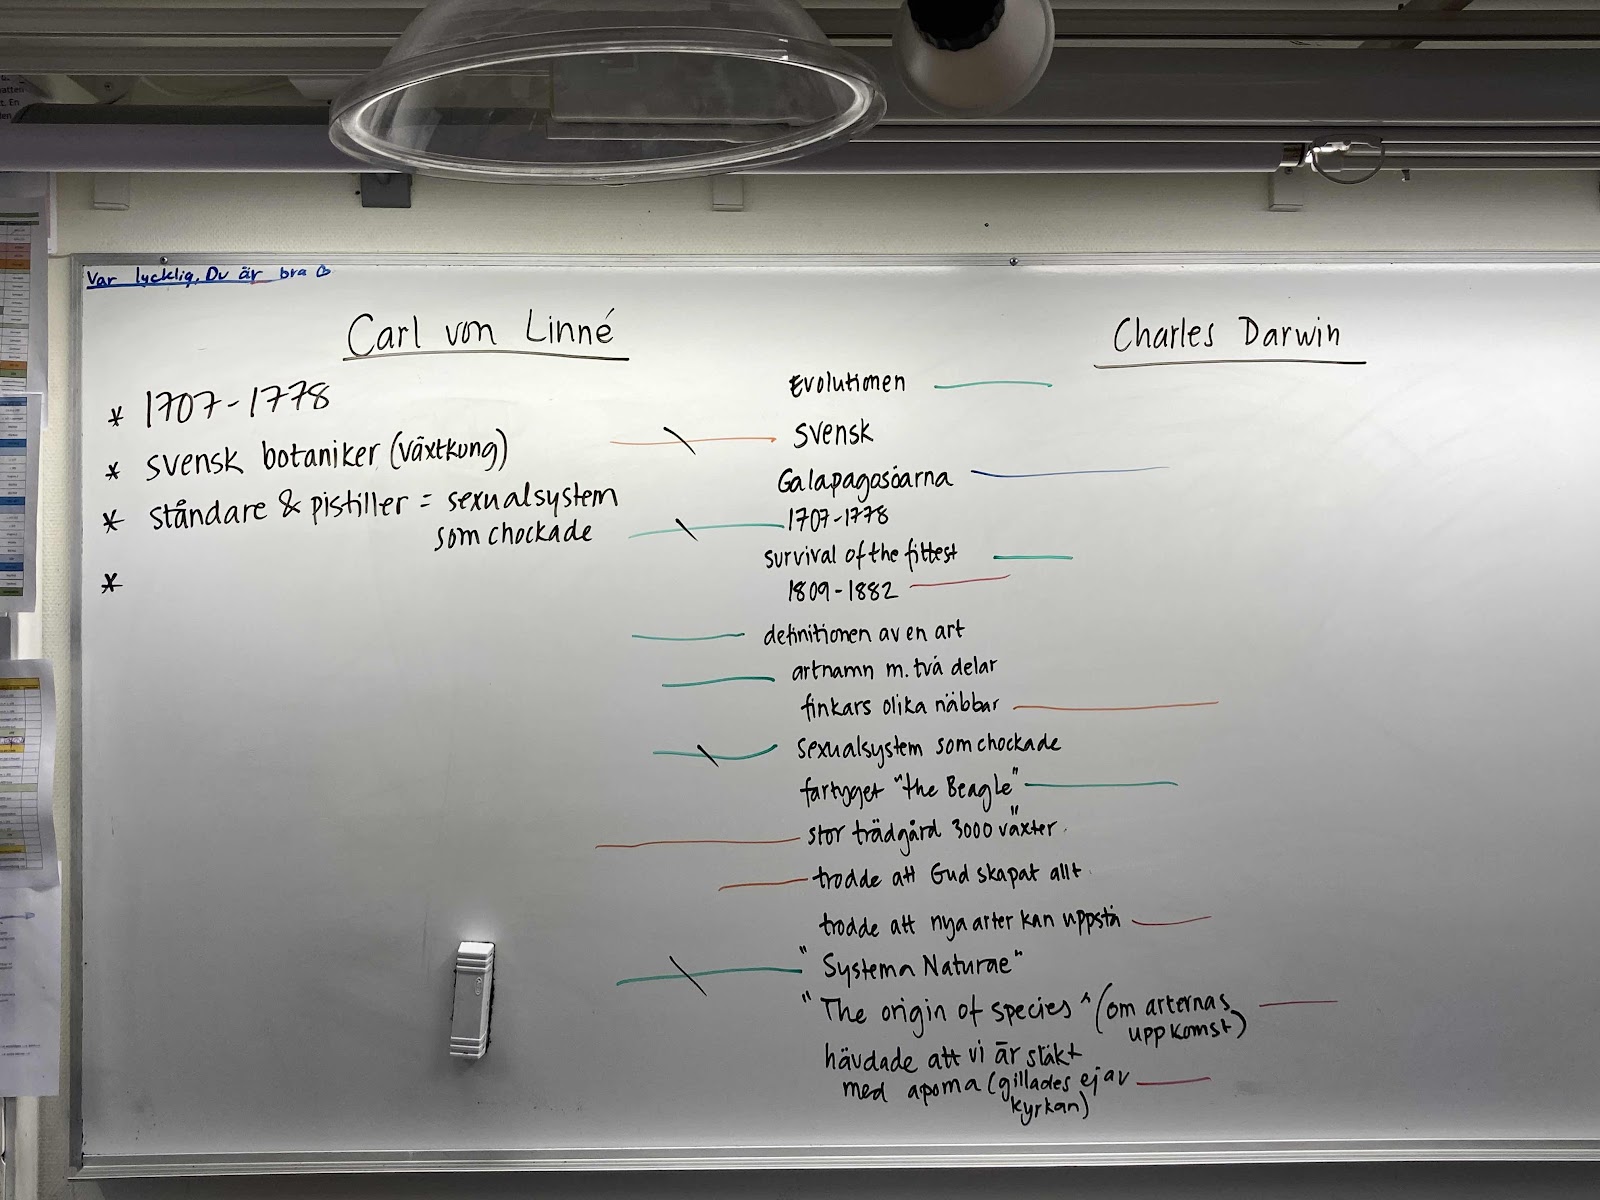 Var lycklig, Du är bra
Carl von Linné
* 1707-1778
* svensk botaniker (växtkung)
* ståndare & pistiller = sexualsystem
som chockade
*
Charles Darwin
Evolutionen
svensk
Galapagosöarna
1707-1778
survival of the fittest
1809-1882
definitionen av en art
artnamn m. två delar
finkars olika näbbar
sexualsystem som chockade
fartyget "the Beagle"
stor trädgård 3000 "växter
trodde att Gud skapat allt
trodde att nya arter kan uppstå
"Systema Naturae"
"The origin of species" (om arternas
uppkomst)
hävdade att vi är släkt
med aporna (gillades ej av
kyrkan)